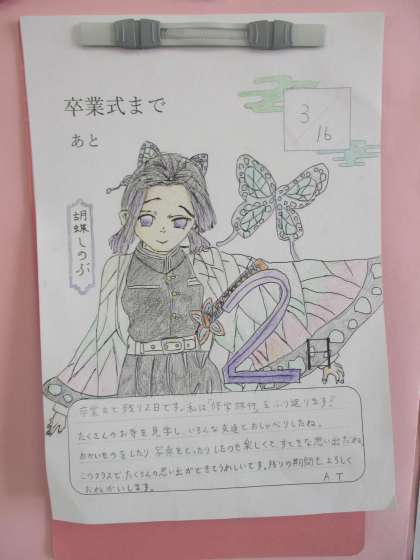 卒業式まで
あと
3/16
胡蝶しのぶ
2日
卒業まで残り2日です。私は「修学旅行」をふり返ります!
たくさんのお寺を見学し、いろんな友達とおしゃべりしたね。
おかいものをしたり、写真をとったりしたのも楽しくて、すてきな思い出だね。
このクラスで、たくさんの思い出ができてうれしいです。残りの期間もよろしく
おねがいします。
A T